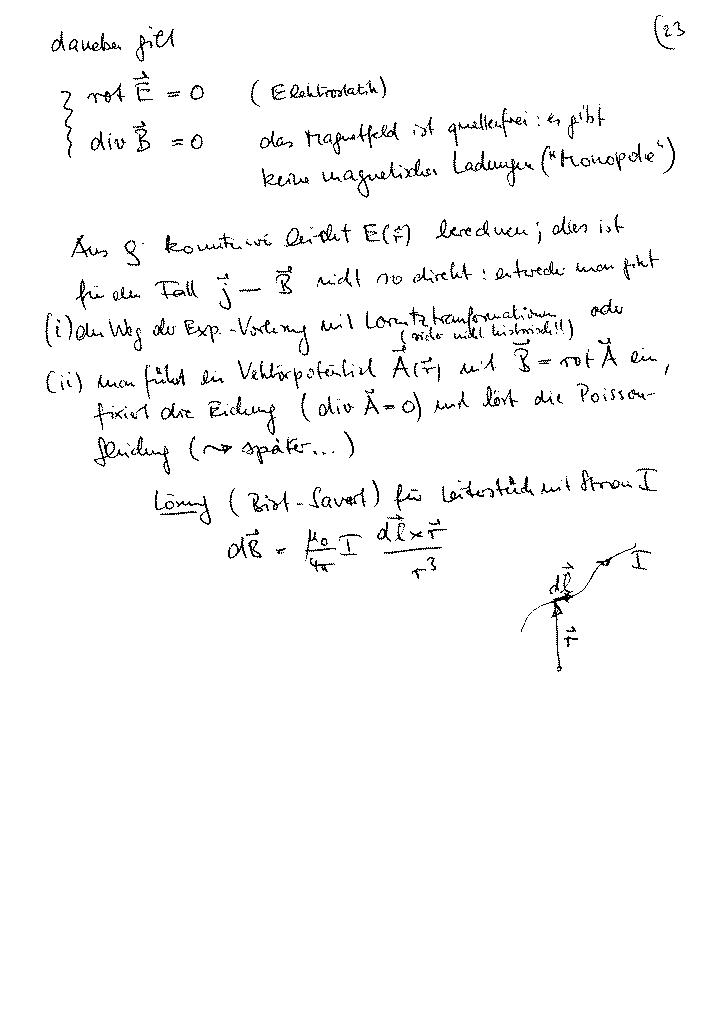 (23
daneben gilt
rot E⃗ = 0 (Elektrostatik)
div B⃗ = 0 das Magnetfeld ist quellenfrei: es gibt
keine magnetischen Ladungen ("Monopole")
Aus ρ konnten wir leicht E(r⃗) berechnen; dies ist
für den Fall j⃗ — B⃗ nicht so direkt: entweder man geht
(i) den Weg der Exp.-Vorlesung mit Lorentztransformationen, oder
(sicher nicht historisch!!)
(ii) man führt ein Vektorpotential A⃗(r⃗) mit B⃗ = rot A⃗ ein,
fixiert die Eichung (div A⃗ = 0) und löst die Poisson-
gleichung (⇝ später...)
Lösung (Biot-Savart) für Leiterstück mit Strom I
dB⃗ = μ₀/4π I dl⃗ × r⃗ / r³
I
dl⃗
r⃗